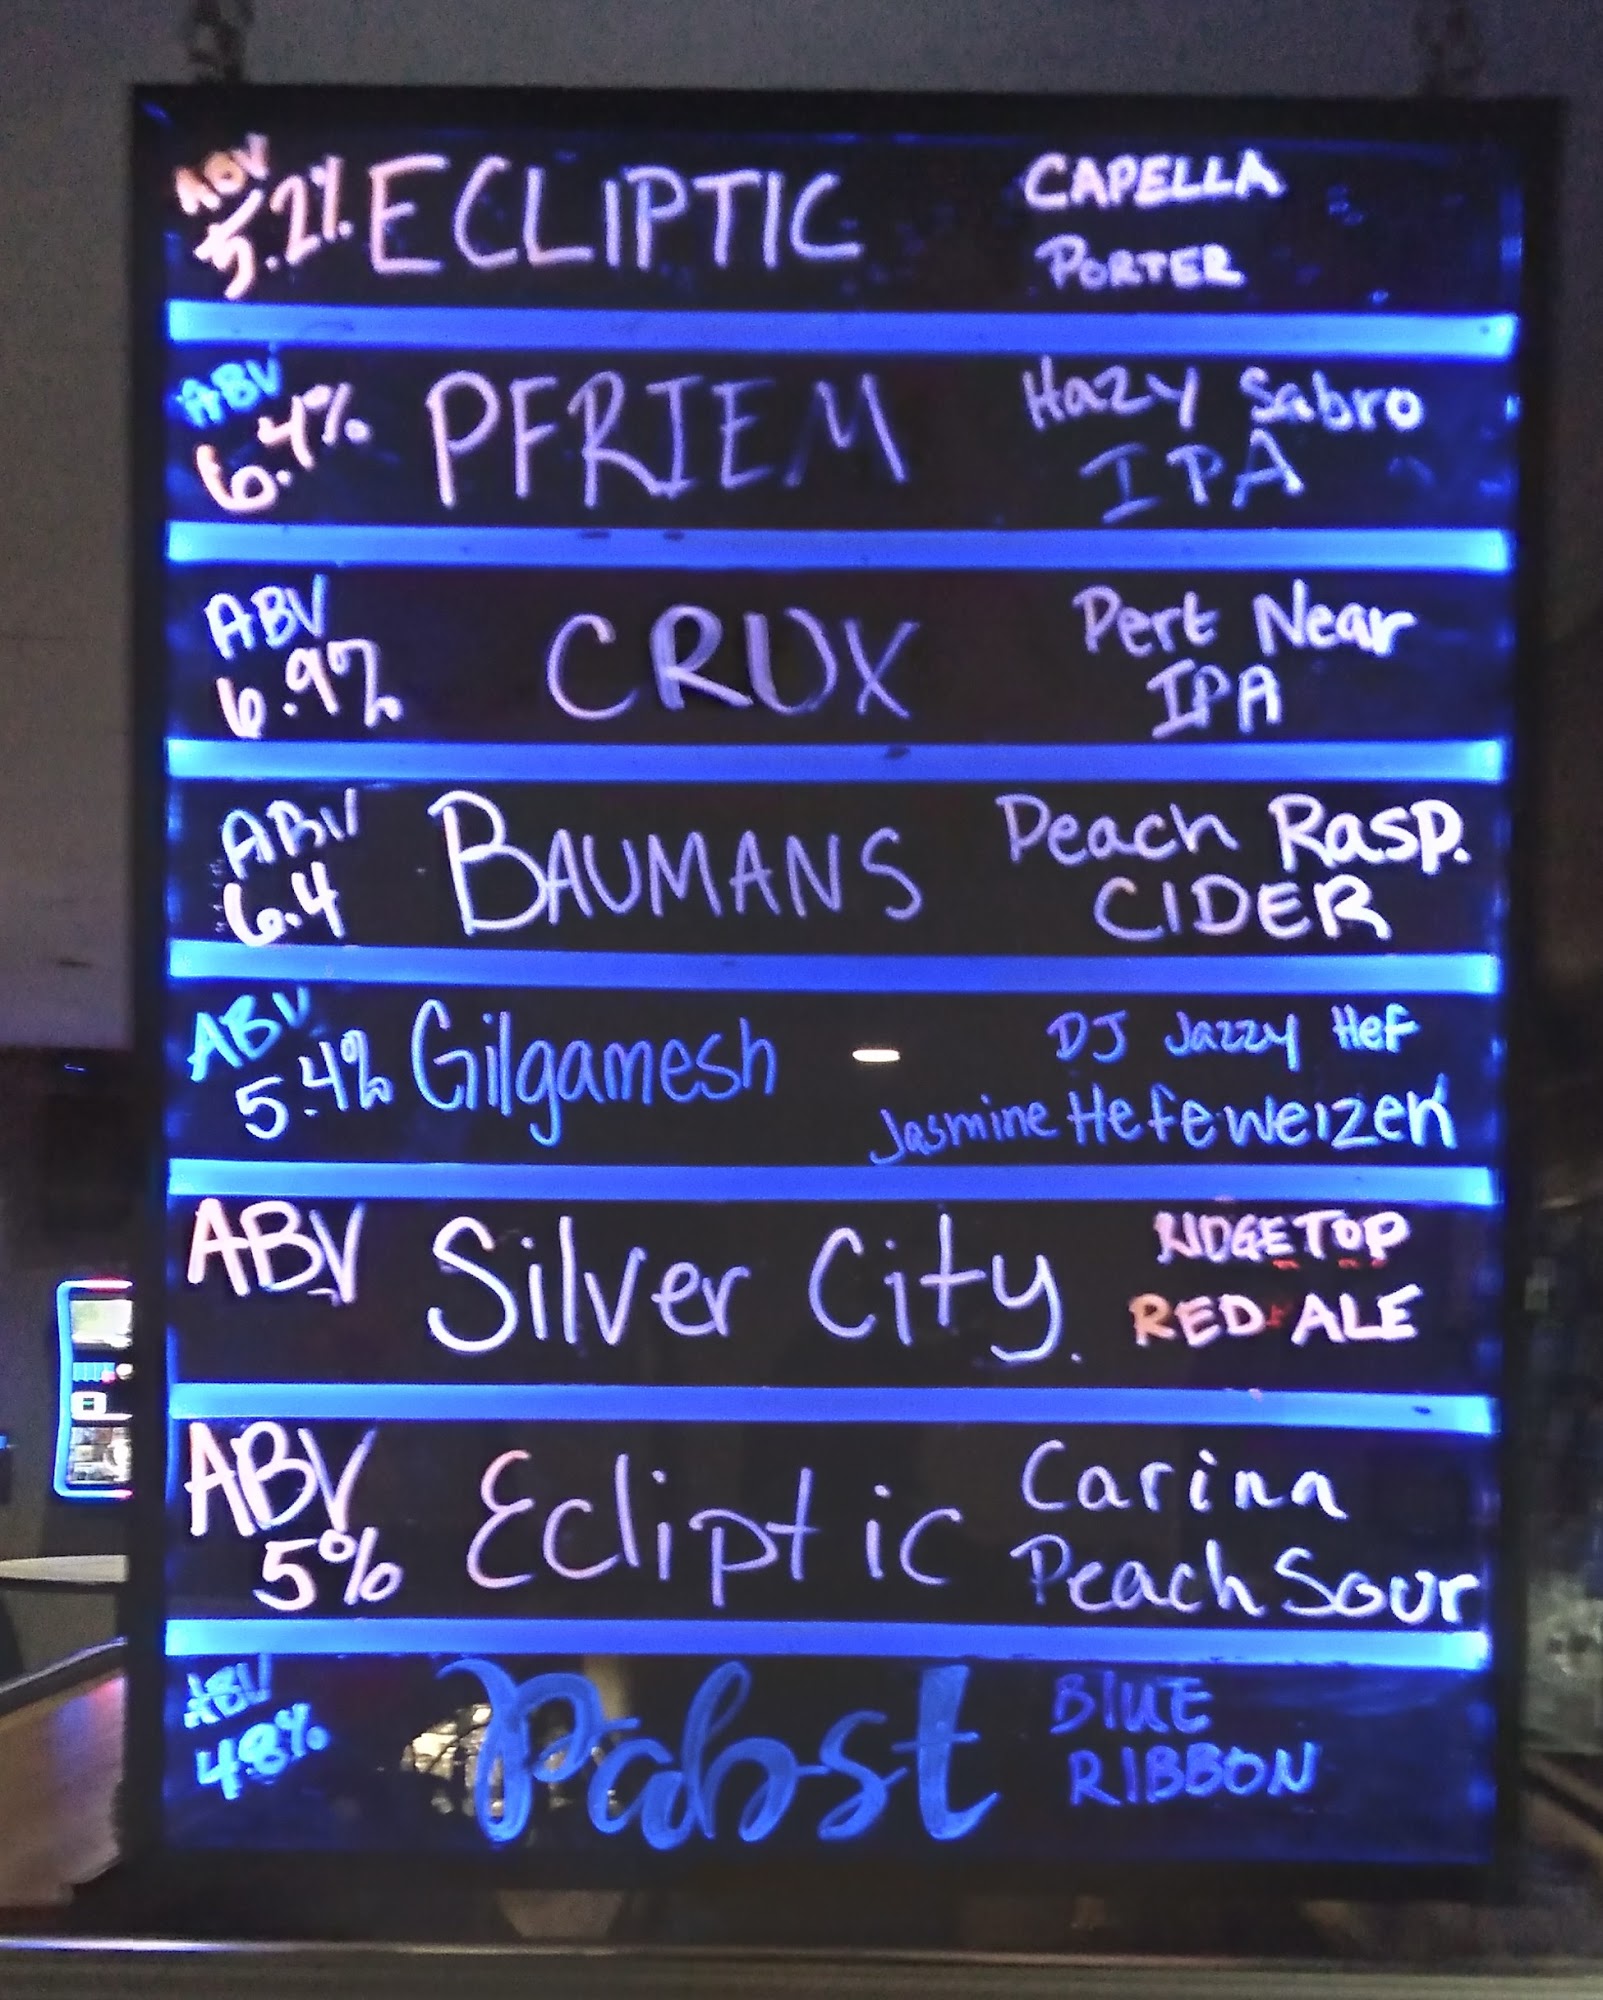 ABV
5.2% ECLIPTIC CAPELLA
PORTER
ABV
6.4% PFRIEM Hazy Sabro
IPA
ABV
6.9% CRUX Pert Near
IPA
ABV
6.4 BAUMANS Peach Rasp.
CIDER
ABV
5.4% Gilgamesh - DJ Jazzy Hef
Jasmine Hefeweizen
ABV Silver City RIDGETOP
RED ALE
ABV
5% Ecliptic Carina
Peach Sour
ABV
4.8% Pabst BLUE
RIBBON